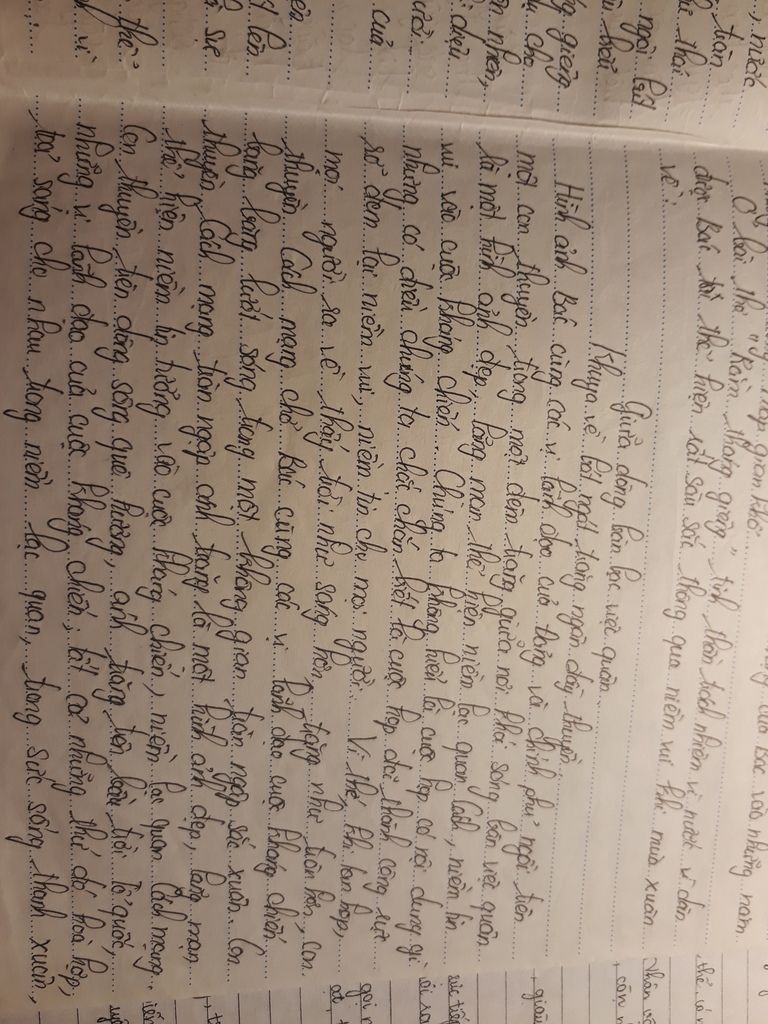 gian khổ.
Ở bài thơ "Rằm tháng giêng", tinh thần trách nhiệm vì nước vì dân
được Bác Hồ thể hiện rất sâu sắc thông qua niềm vui khi mùa xuân
về:
Giữa dòng bàn bạc việc quân
Khuya về bát ngát trăng ngân đầy thuyền.
Hình ảnh Bác cùng các vị lãnh đạo của Đảng và chính phủ ngồi trên
một con thuyền trong một đêm trăng giữa nơi khói sóng bàn việc quân
là một hình ảnh đẹp, lãng mạn thể hiện niềm lạc quan lớn, niềm tin
vui vào cuộc kháng chiến. Chúng ta không biết là cuộc họp có nội dung gì
nhưng có điều chúng ta chắc chắn biết là cuộc họp đã thành công rực
rỡ đem lại niềm vui, niềm tin cho mọi người. Vì thế, khi tan họp,
mọi người ra về thấy trời như sáng hơn, trăng như tròn hơn, con
thuyền Cách mạng chở Bác cùng các vị lãnh đạo cuộc kháng chiến
băng băng lướt sóng trong một không gian tràn ngập sắc xuân. Con
thuyền Cách mạng tràn ngập ánh trăng là một hình ảnh đẹp, lãng mạn
thể hiện niềm tin tưởng vào cuộc kháng chiến, niềm lạc quan Cách mạng.
Con thuyền trên dòng sông quê hương, ánh trăng trên bầu trời Tổ quốc,
những vị lãnh đạo của cuộc kháng chiến, tất cả những thứ đó hoà hợp,
toả sáng cho nhau trong niềm lạc quan, trong sức sống thanh xuân,